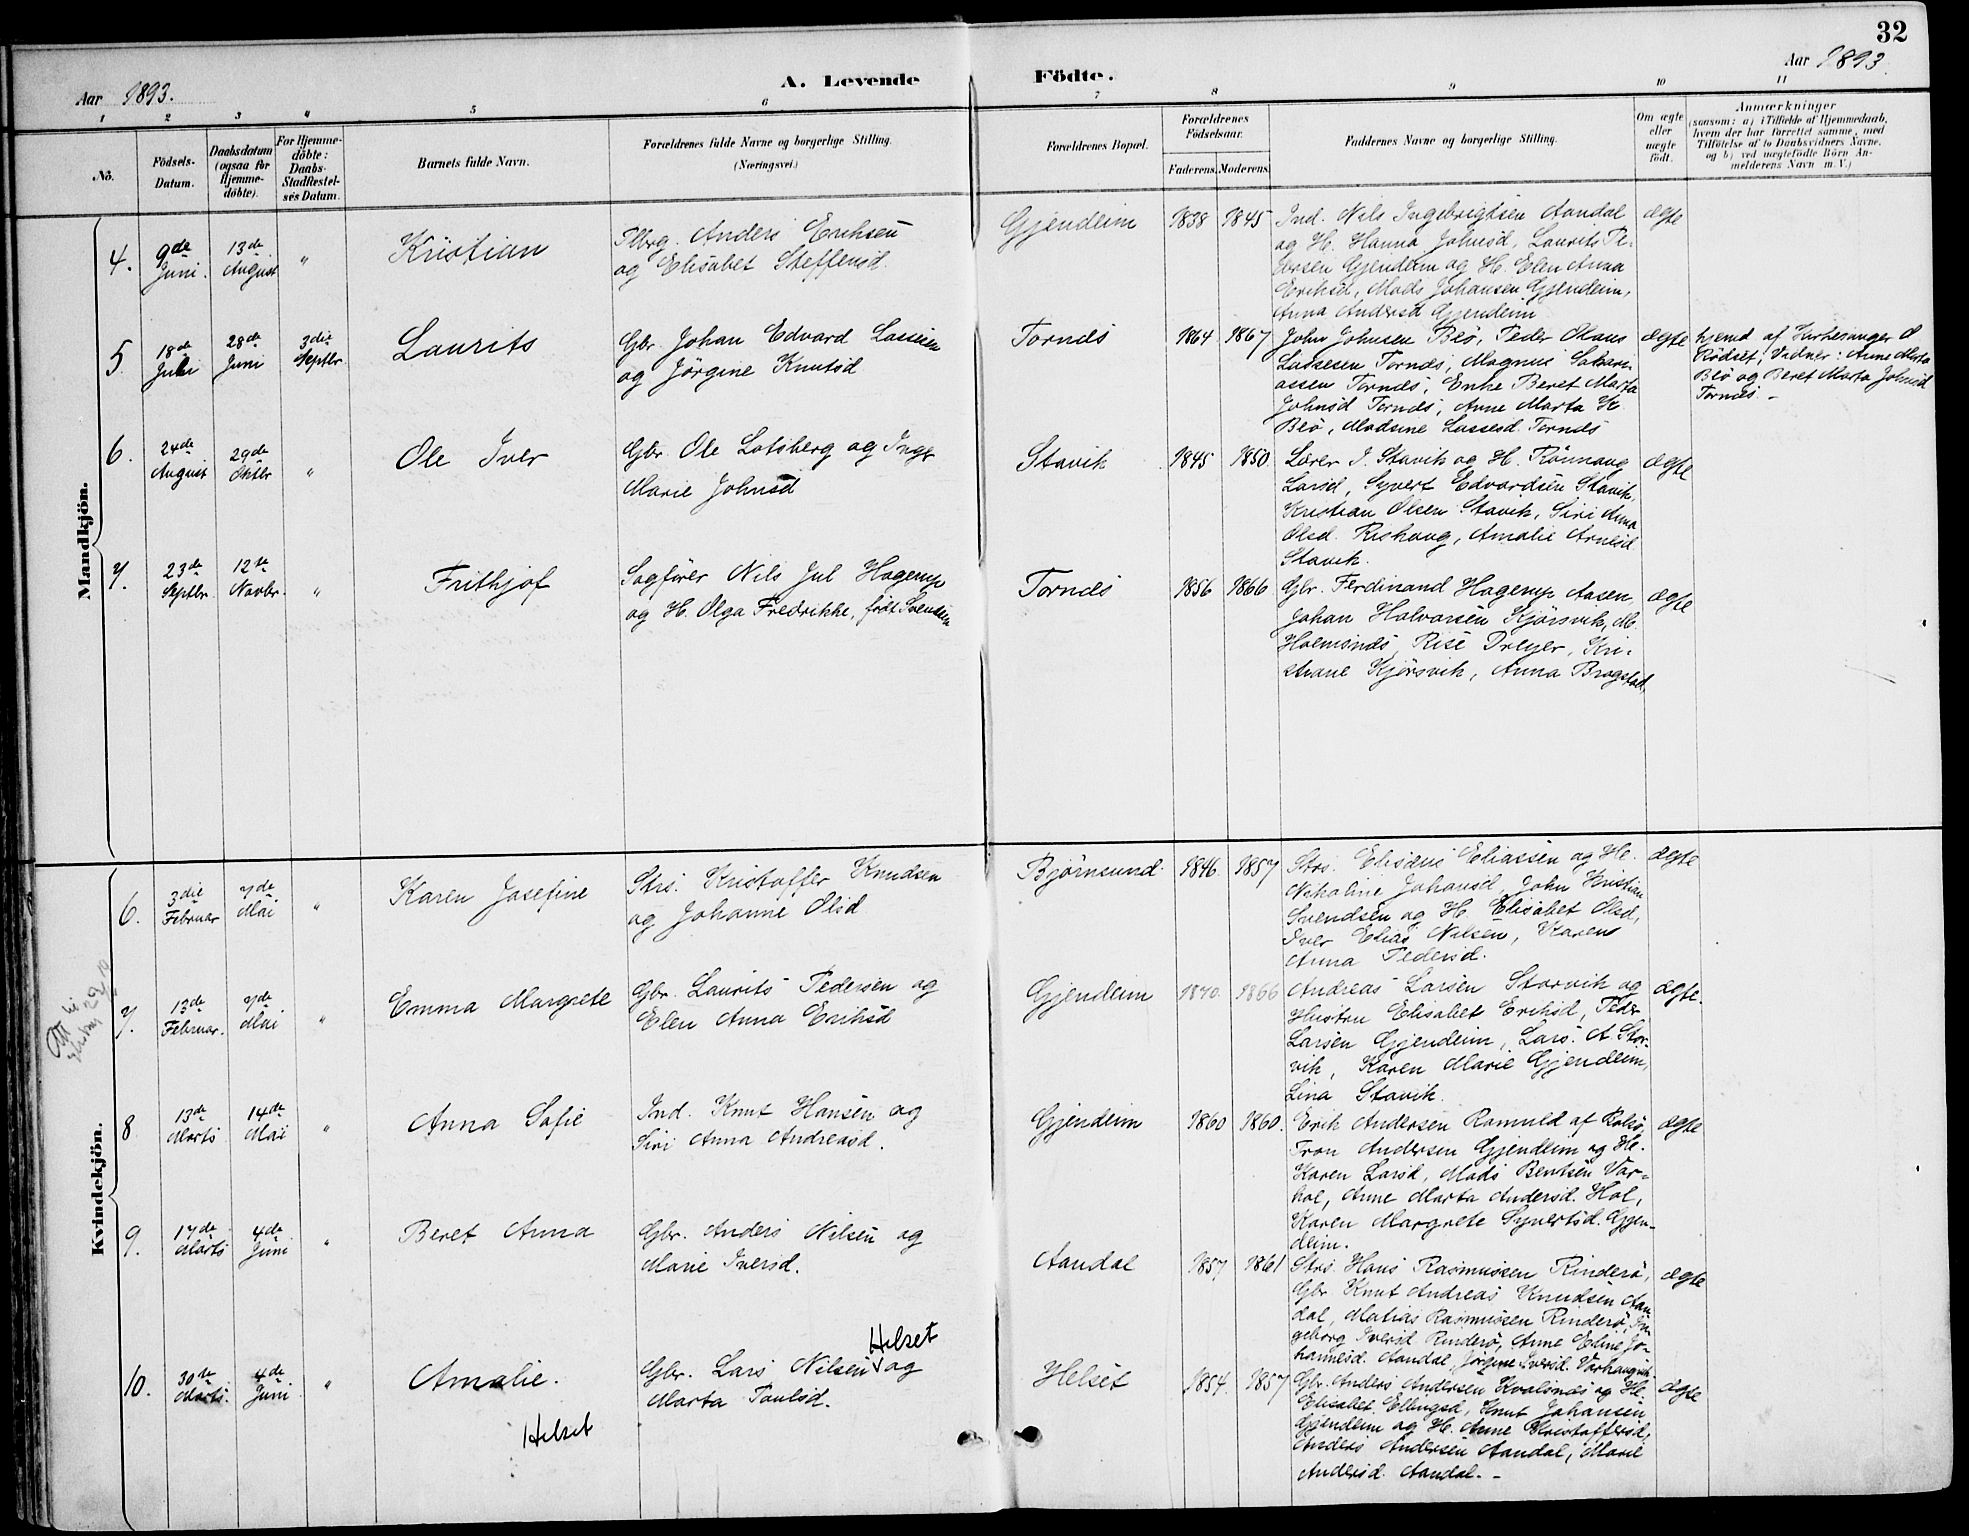 32
Aar 1893.
A. Levende Födte.
Aar 1893.
1 2 3 4 5 6 7 8 9 10 11
No.
Födsels-Datum.
Daabsdatum (ogsaa for Hjemme-döbte).
For Hjemme-döbte: Daabs-Stadfæstel-ses Datum.
Barnets fulde Navn.
Forældrenes fulde Navne og borgerlige Stilling.
(Næringsvei.)
Forældrenes Bopæl.
Forældrenes Födselsaar.
Faderens. Moderens.
Faddernes Navne og borgerlige Stilling.
Om ægte eller uægte födt.
Anmærkninger
(saasom: a) i Tilfælde af Hjemmedaab,
hvem der har forrettet samme, med
Tilföielse af to Daabsvidners Navne,
og b) ved uægtefödte Börn An-
melderens Navn m. V.)
Mandkjön.
4. 9de Juni. 13de August " Kristian
Anders Eriksen
og Elisabet Steffensd.
Gjendeim 1838 1845
Ind. Nils Ingebrigtsen Aandal
og H. Hanna Johnsd, Laurits Pe-
dersen Gjendeim og H. Elen Anna
Eriksd, Mads Johansen Gjendeim,
Anna Andersd Gjendeim
ægte
5 18de Juli 28de Juni 3die Septbr. Laurits
Gbr. Johan Edvard Lassesen
og Jörgine Knutsd
Tornes 1864 1867
John Johnsen Blö, Peder Olaus
Lassesen Tornes, Magnus
Tornes, Enke Beret Marta
Johnsd Tornes, Anne Marta K.
Blö, Madsine Lassesd. Tornes
ægte
hjemd af Kirkesanger O
Rödset, Vidner: Anne Marta
Blö og Beret Marta Johnsd
Tornes. -
6. 24de August 29de Oktbr " Ole Iver
Gbr. Ole Lotsberg og Inger
Marie Johnsd
Stavik 1845 1850
Lærer I. Stavik og H. Rönnaug
Larsd, Syvert Edvardsen Stavik,
Kristian Olsen Stavik, Siri Anna
Olsd. Rishaug, Amalie Arnesd
Stavik.
ægte
7. 23de Septbr. 12te Novbr. " Frithjof
Sagförer Nils Jul Hagerup
og H. Olga Fredrikke, födt Svendsen
Tornes 1856 1866
Gbr. Ferdinand Hagerup Aasen,
Johan Halvorsen Kjörsvik, M.
Holmsnes, Rise Dreyer, Kri-
stiane Kjörsvik, Anna Brogstad,
ægte
Kvindekjön.
6. 3die Februar 7de Mai " Karen Josefine
Strs. Kristoffer Knudsen
og Johanne Olsd
Björnsund. 1846. 1857
Strs. Eliseus Eliassen og H.
Nikoline Johansd, John Kristian
Svendsen og H. Elisabet Olsd,
Iver Elias Nilsen, Karen
Anna Pedersd.
ægte
7. 13de Februar. 7de Mai " Emma Margrete
Gbr. Laurits Pedersen og
Elen Anna Eriksd
Gjendeim 1840. 1866
Andreas Larsen Storvik og
Hustru Elisabet Eriksd, Peder
Larsen Gjendeim, Lars. A. Stor-
vik, Karen Marie Gjendeim,
Lina Stavik.
ægte.
8 13de Marts 14de Mai " Anna Sofie
Ind. Knut Hansen og
Siri Anna Andreasd.
Gjendeim 1860 1860.
Erik Andersen Romuld af
Tron Andersen Gjendeim og H.
Karen Larsd, Mads Bentsen Var-
hol, Anne Marta Andersd. Hol,
Karen Margrete Syvertsd. Gjen-
deim.
ægte
9. 17de Marts 4de Juni " Beret Anna
Gbr. Anders Nilsen og
Marie Iversd.
Aandal 1857 1861
Strs. Hans Rasmussen Rinderö,
Gbr. Knut Andreas Knudsen Aan-
dal, Matias Rasmussen Rinderö, In-
geborg Iversd Rinderö, Anne Eline Jo-
hannesd. Aandal, Jörgine Iversd.
ægte
10. 30te Marts. 4de Juni " Amalie.
Helset
Gbr. Lars Nilsen Helset og
Marta Paulsd.
Helset 1854. 1857
Gbr. Anders Andersen Kvalsnes og H.
Elisabet Ellingsd, Knut Johansen
Gjendeim og H. Anne Kristoffersd,
Anders Andersen Aandal, Marie
Andersd. Aandal. -
ægte